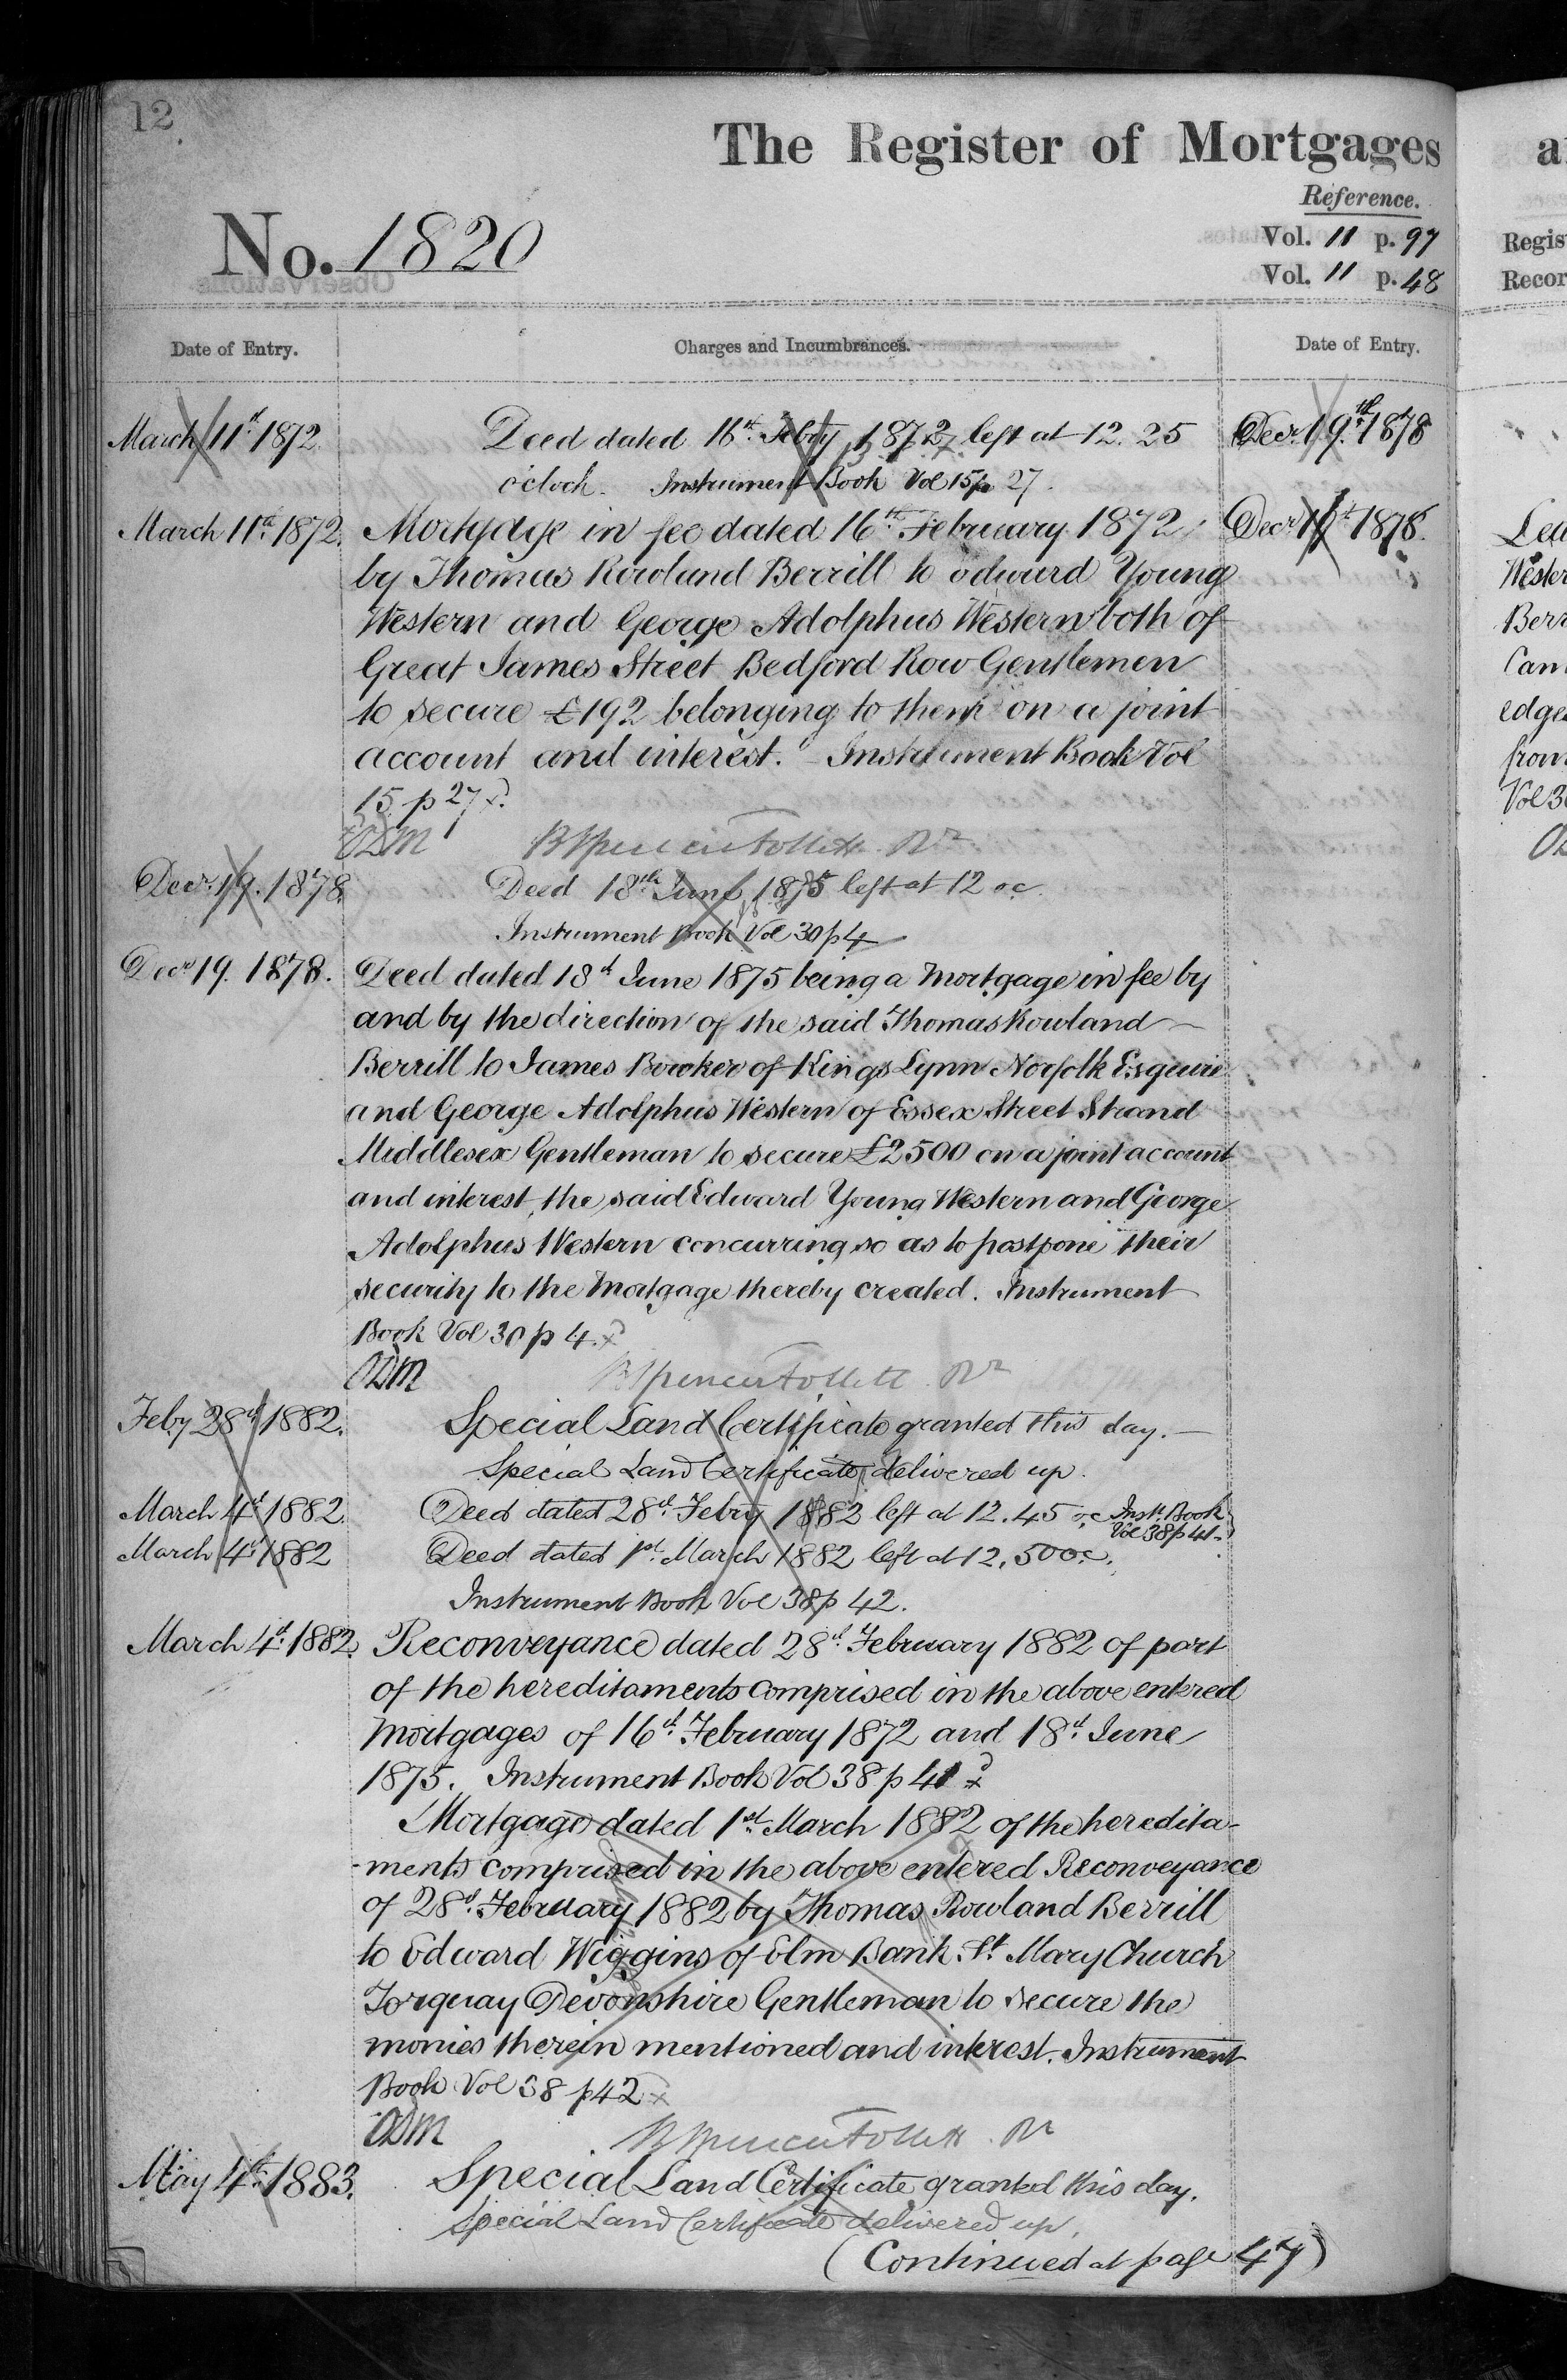 12
The Register of Mortgages
Reference.
No. 1820
Vol. 11 p. 97
Vol. 11 p. 48
Date of Entry.
Charges and Incumbrances.
Date of Entry.
March 11th 1872
Deed dated 16th Febry 1872 left at 12.25
Decr. 19th 1878
o'clock. Instrument Book Vol 15 p 27.
March 11th 1872.
Mortgage in fee dated 16th February 1872
Decr 19th 1878.
by Thomas Rowland Berrill to Edward Young
Western and George Adolphus Western both of
Great James Street Bedford Row Gentlemen
to secure £192 belonging to them on a joint
account and interest. - Instrument Book Vol
15 p 27.
ODM BSpencer Follett Rr
Decr. 19. 1878.
Deed 18th June 1875 left at 12 oc.
Instrument Book Vol 30 p 4
Decr 19. 1878.
Deed dated 18th June 1875 being a Mortgage in fee by
and by the direction of the said Thomas Rowland
Berrill to James Bowker of Kings Lynn Norfolk Esquire
and George Adolphus Western of Essex Street Strand
Middlesex Gentleman to secure £2500 on a joint account
and interest, the said Edward Young Western and George
Adolphus Western concurring so as to postpone their
security to the Mortgage thereby created. Instrument
Book Vol 30 p 4.
ODM BSpencer Follett Rr
Feby 28th 1882.
Special Land Certificate granted this day.
Special Land Certificate delivered up.
March 4th 1882
Deed dated 28th Febry 1882 left at 12.45 oc Inst. Book
Vol 38 p 41.
March 4th 1882
Deed dated 1st March 1882 left at 12.50 oc.
Instrument Book Vol 38 p 42.
March 4th 1882.
Reconveyance dated 28th February 1882 of part
of the hereditaments comprised in the above entered
Mortgages of 16th February 1872 and 18th June
1875. Instrument Book Vol 38 p 41
Mortgage dated 1st March 1882 of the heredita-
-ments comprised in the above entered Reconveyance
of 28th February 1882 by Thomas Rowland Berrill
to Edward Wiggins of Elm Bank St. Mary Church
Torquay Devonshire Gentleman to secure the
monies therein mentioned and interest. Instrument
Book Vol 38 p 42
ODM BSpencer Follett Rr
May 4th 1883.
Special Land Certificate granted this day.
Special Land Certificate delivered up.
(Continued at page 47)